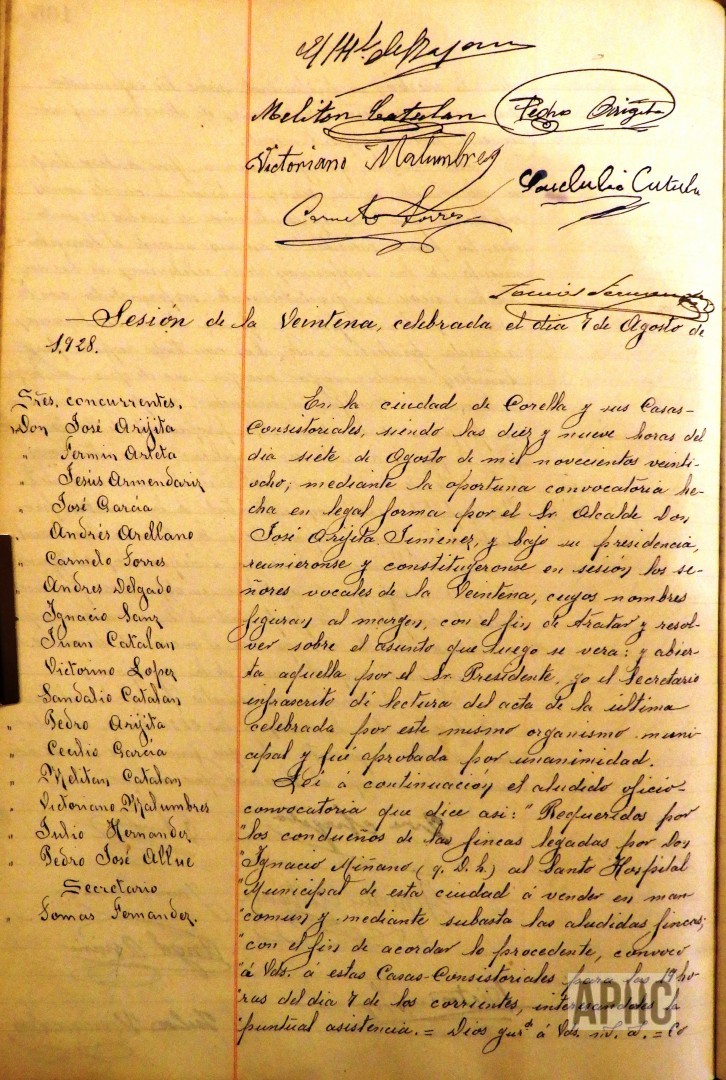 Meliton Catalan
Pedro Arijita
Victoriano Malumbres
Carmelo Torres
Sesión de la Veintena, celebrada el día 7 de Agosto de
1.928.
Sres. concurrentes.
Don José Arijita
" Fermin Arieta
" Jesús Armendariz
" José García
" Andrés Arellano
" Carmelo Torres
" Andres Delgado
" Ignacio Sanz
" Juan Catalan
" Victorino Lopez
" Sandalio Catalan
" Pedro Arijita
" Cecilio Garcia
" Meliton Catalan
" Victoriano Malumbres
" Julio Hernandez
" Pedro José Allue
Secretario
" Tomas Fernandez.
En la ciudad de Corella y sus Casas-
Consistoriales, siendo las diez y nueve horas del
dia siete de Agosto de mil novecientos veinti-
ocho; mediante la oportuna convocatoria he-
cha en legal forma por el Sr. Alcalde Don
José Arijita Jimenez, y bajo su presidencia,
reunieronse y constituyeronse en sesión los se-
ñores vocales de la Veintena, cuyos nombres
figuran al margen, con el fin de tratar y resol-
ver sobre el asunto que luego se vera: y abier-
ta aquella por el Sr. Presidente, yo el Secretario
infrascrito dí lectura del acta de la última
celebrada por este mismo organismo muni-
cipal y fué aprobada por unanimidad.
Leí á continuación el aludido oficio-
convocatoria que dice asi: "Requeridos por
"los condueños de las fincas legadas por Don
"Ignacio Miñano (q. D. h.) al Santo Hospital
"Municipal de esta ciudad á vender en man-
"comun y mediante subasta las aludidas fincas;
"con el fin de acordar lo procedente, convoco
"á Vds. á estas Casas-Consistoriales para las 19 ho-
"ras del dia 7 de los corrientes, interesandoles la
"puntual asistencia. = Dios gue á Vds. m. a. = Co
APHC